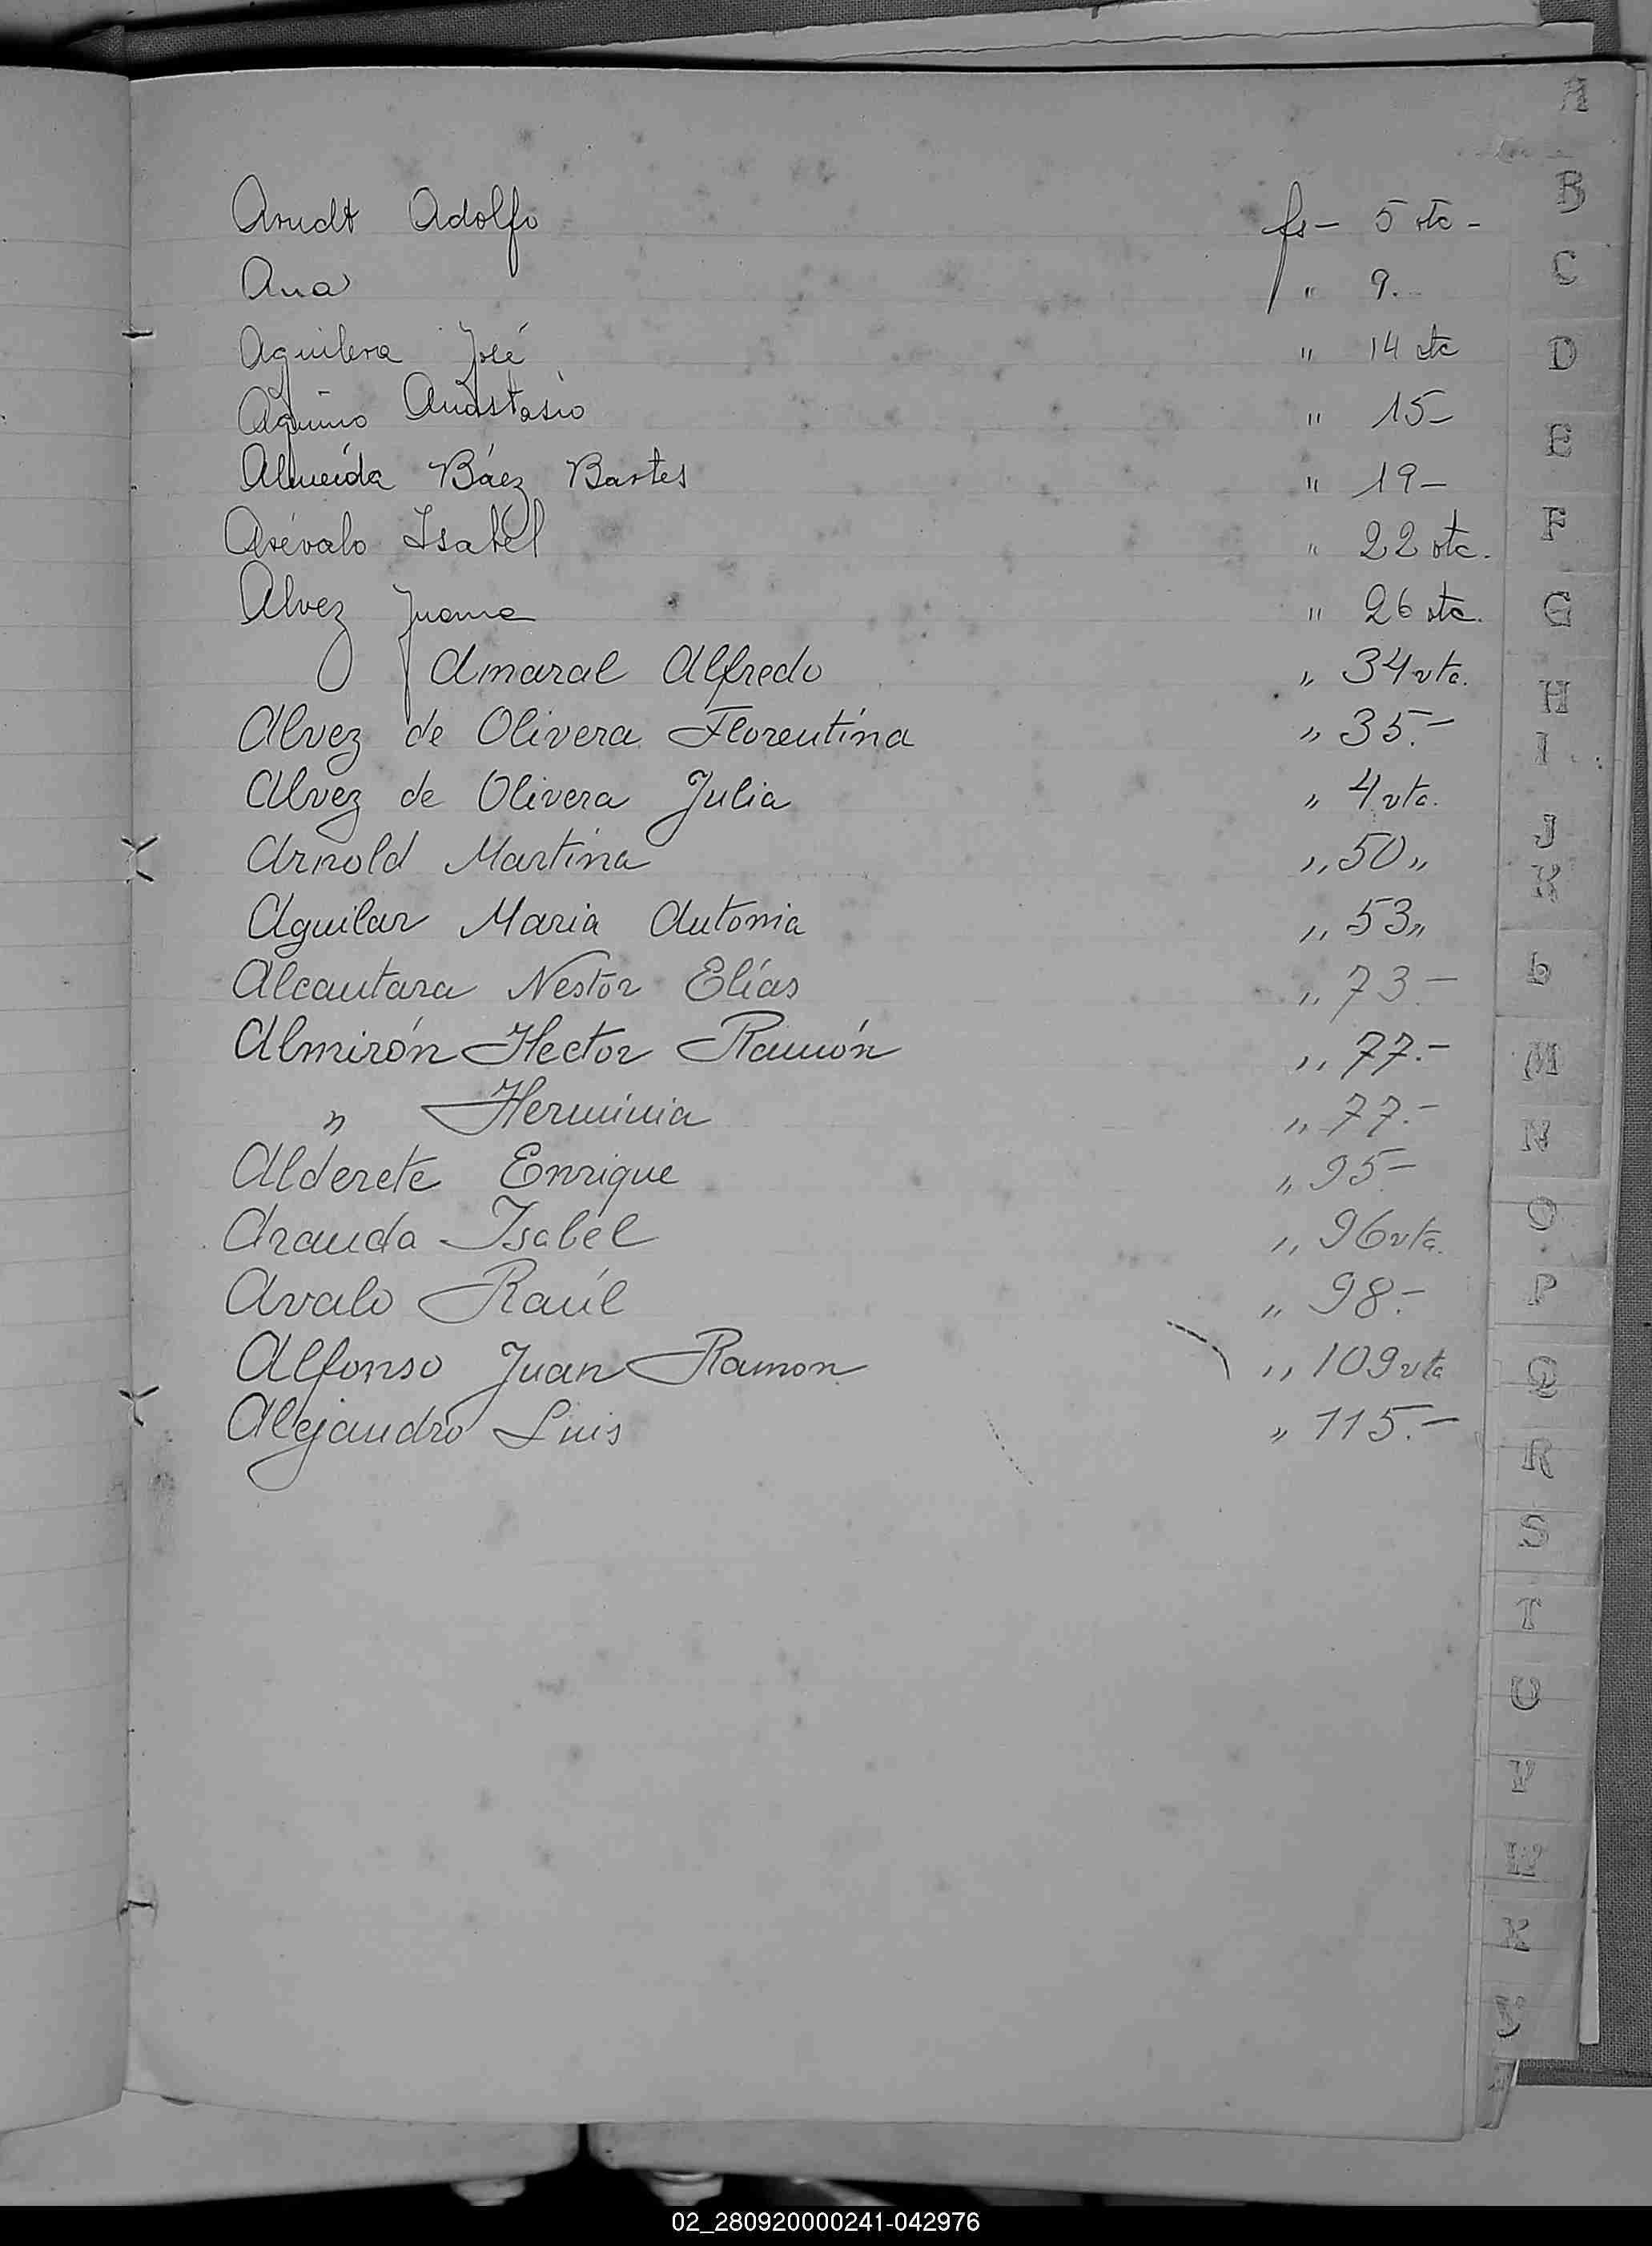 Arndt Adolfo fs- 5 vta -
Ana " 9.-
Aguilera José " 14 vta
Aquino Anastasio " 15-
Almeida Báez Bartes " 19-
Arévalo Isabel " 22 vta.
Alvez Juana " 26 vta.
Amaral Alfredo " 34 vta.
Alvez de Olivera Florentina " 35.-
Alvez de Olivera Julia " 4 vta.
Arnold Martina " 50 "
Aguilar Maria Antonia " 53 "
Alcantara Nestor Elías " 73.-
Almirón Hector Ramón " 77.-
" Herminia " 77.-
Alderete Enrique " 95-
Aranda Isabel " 96 vta.
Avalo Raúl " 98.-
Alfonso Juan Ramon " 109 vta
Alejandro Luis " 115.-
A
B
C
D
E
F
G
H
I
J
K
L
M
N
O
P
Q
R
S
T
U
V
W
X
Y
02_280920000241-042976